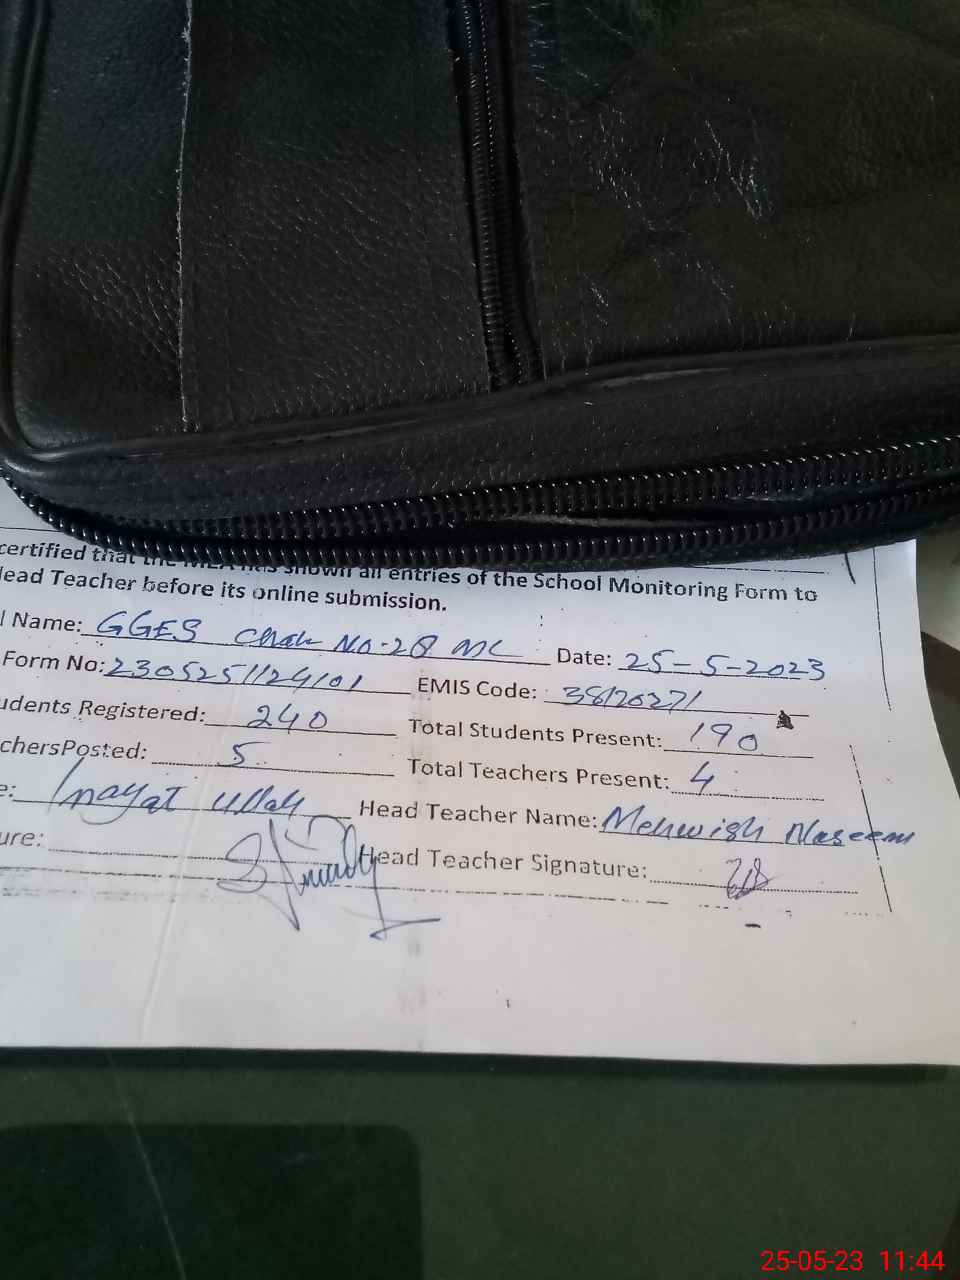 certified that the MEA has shown all entries of the School Monitoring Form to
lead Teacher before its online submission.
l Name: GGES Chak No-28 MC Date: 25-5-2023
Form No: 2305251124101 EMIS Code: 38120271
udents Registered: 240 Total Students Present: 190
chersPosted: 5 Total Teachers Present: 4
e: Inayat Ullah Head Teacher Name: Mehwish Naseem
ure: Head Teacher Signature:
25-05-23 11:44